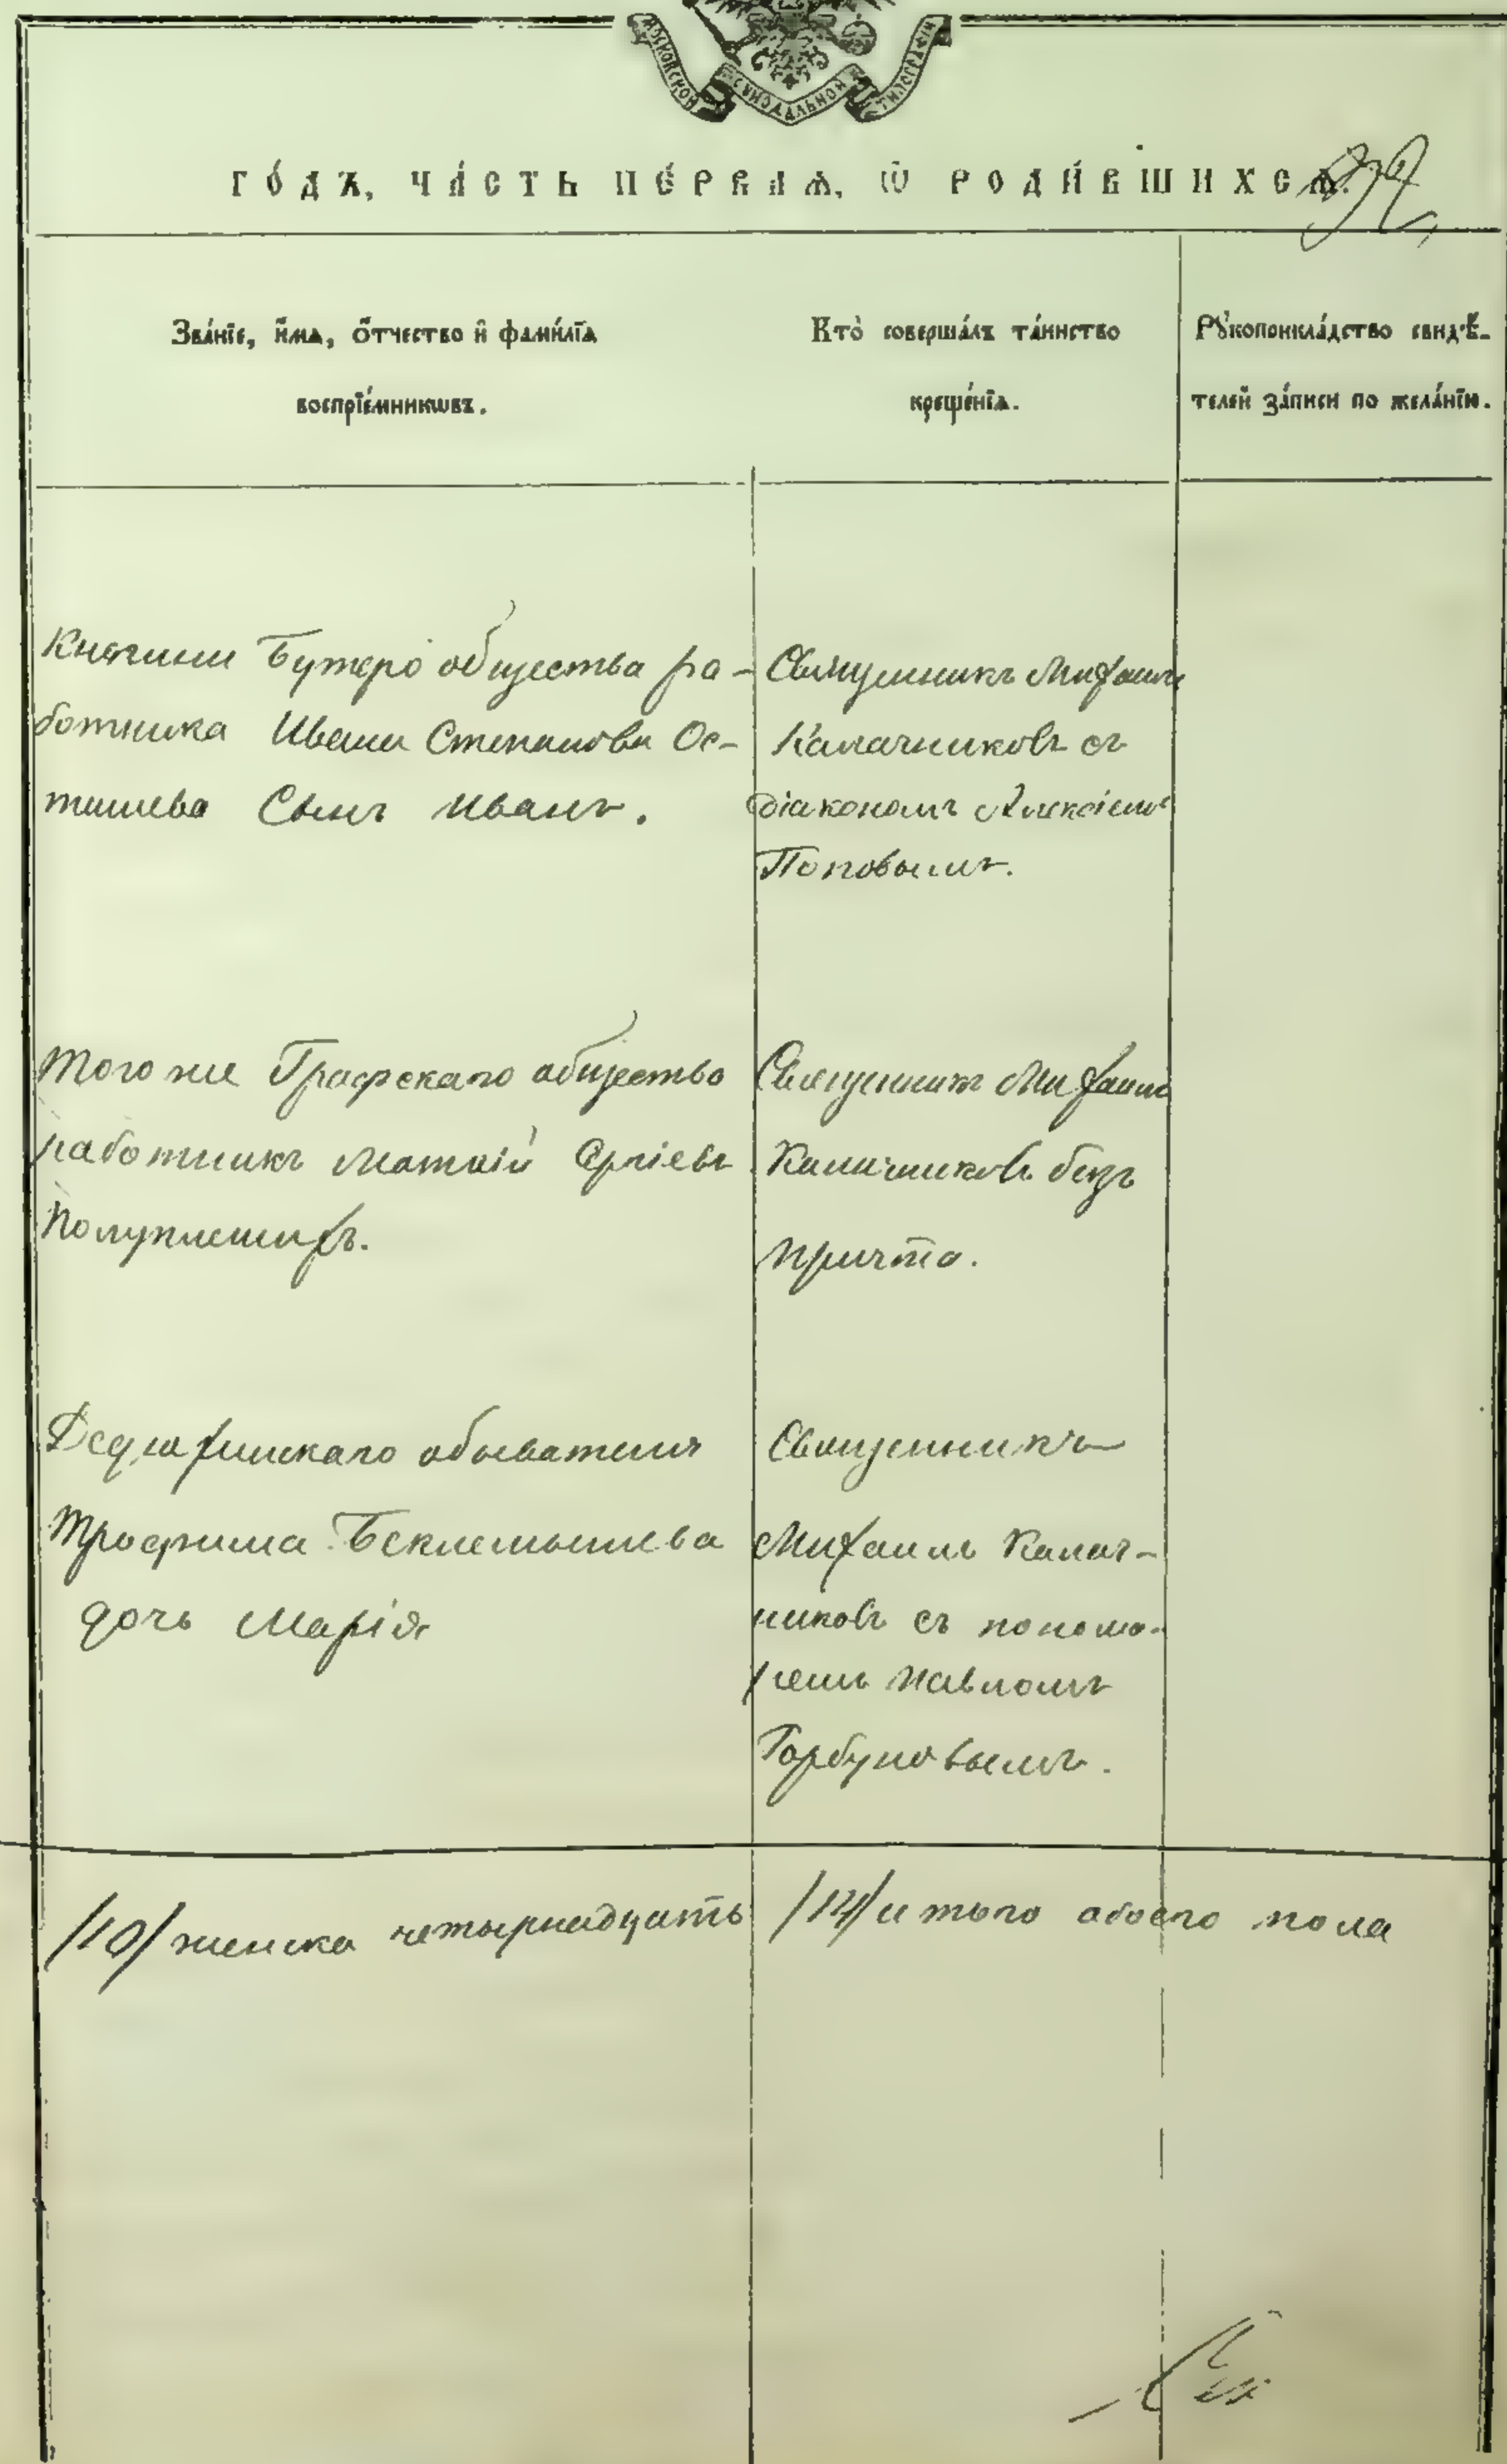 МОСКОВСКОЙ СѴНОДАЛЬНОЙ ТИПОГРАФІИ
ГО́ДЪ, ЧА́СТЬ ПЕ́РВАѦ, Ѡ҆ РОДИ́ВШИХСѦ.
Зва́нїе, и҆́мѧ, ѻ҆́тчество и҆ фами́лїѧ
воспрїе́мникѡвъ.
Кто̀ соверша́лъ та́инство
креще́нїѧ.
Рꙋкоприкла́дство свидѣ́-
телей за́писи по жела́нїю.
Княгини Бутеро общества ра-
ботника Ивана Степанова Ос-
ташева Сынъ Иванъ.
Священникъ Михаилъ
Калачниковъ съ
діакономъ Алексіемъ
Поповымъ.
Того же Графскаго общество
работникъ Матвій Сргіевъ
Священникъ Михаилъ
Калачниковъ безъ
причта.
обывателя
Трофима Беклемышева
дочь Марія
Священникъ
Михаилъ Калач-
никовъ съ понома-
ремъ Павломъ
Горбуновымъ.
/10/ женска четырнадцать /14/ итого обоего пола